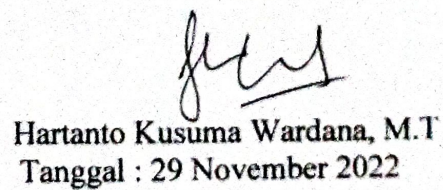 Hartanto Kusuma Wardana, M.T
Tanggal : 29 November 2022